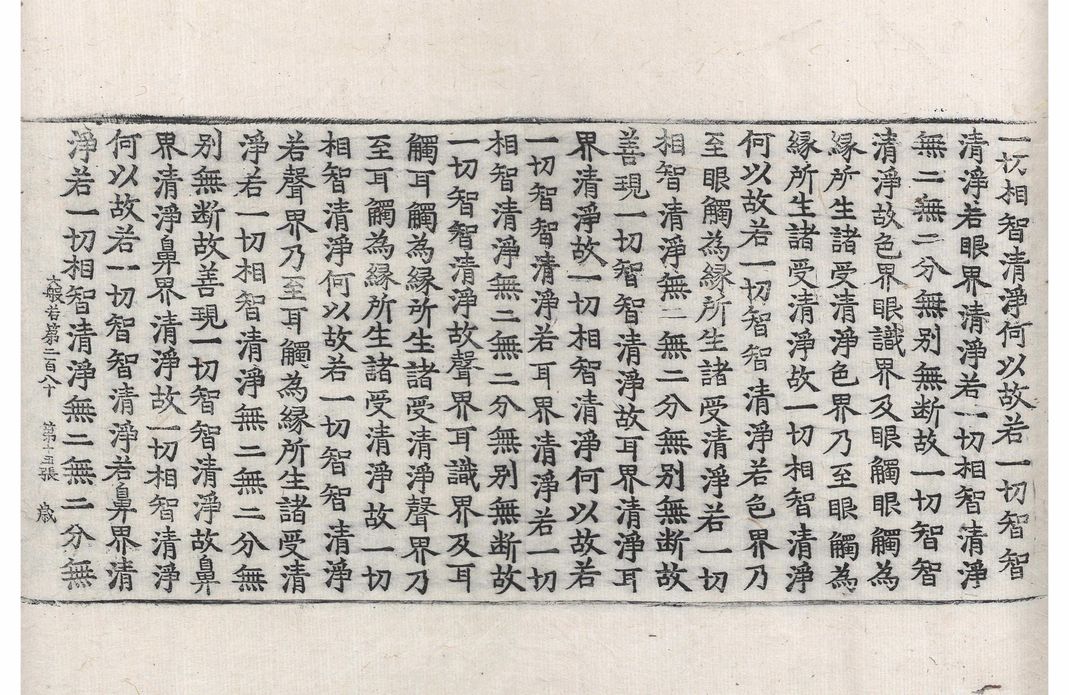 一切相智清淨何以故若一切智智
清淨若眼界清淨若一切相智清淨
無二無二分無別無断故一切智智
清淨故色界眼識界及眼觸眼觸為
縁所生諸受清淨色界乃至眼觸為
縁所生諸受清淨故一切相智清淨
何以故若一切智智清淨若色界乃
至眼觸為縁所生諸受清淨若一切
相智清淨無二無二分無別無断故
善現一切智智清淨故耳界清淨耳
界清淨故一切相智清淨何以故若
一切智智清淨若耳界清淨若一切
相智清淨無二無二分無別無断故
一切智智清淨故聲界耳識界及耳
觸耳觸為縁所生諸受清淨聲界乃
至耳觸為縁所生諸受清淨故一切
相智清淨何以故若一切智智清淨
若聲界乃至耳觸為縁所生諸受清
淨若一切相智清淨無二無二分無
別無断故善現一切智智清淨故鼻
界清淨鼻界清淨故一切相智清淨
何以故若一切智智清淨若鼻界清
淨若一切相智清淨無二無二分無
大般若第二百八十 第十五張 歳